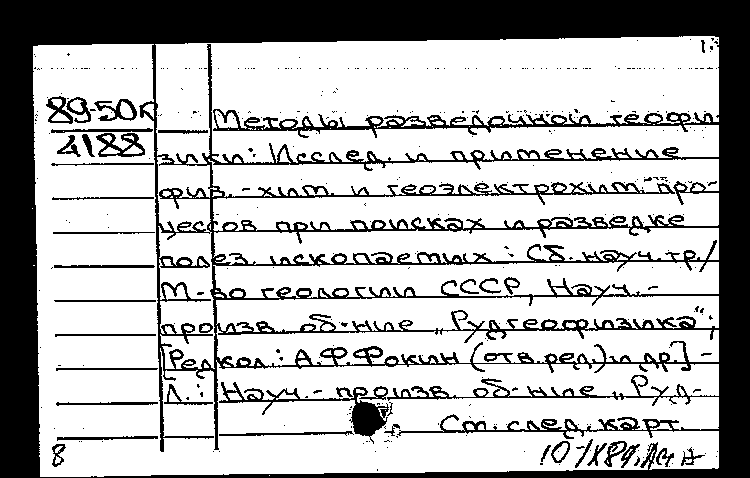 89-50к
4188
Методы разведочной геофи-
зики: Исслед. и применение
физ.-хим. и геоэлектрохим. про-
цессов при поисках и разведке
полез. ископаемых : Сб. науч. тр./
М-во геологии СССР, Науч.-
произв. об-ние „Рудгеофизика“;
[Редкол.: А.Ф.Фокин (отв.ред.) и др.] -
Л.: Науч.- произв. об-ние „Руд-
См. след. карт.
8